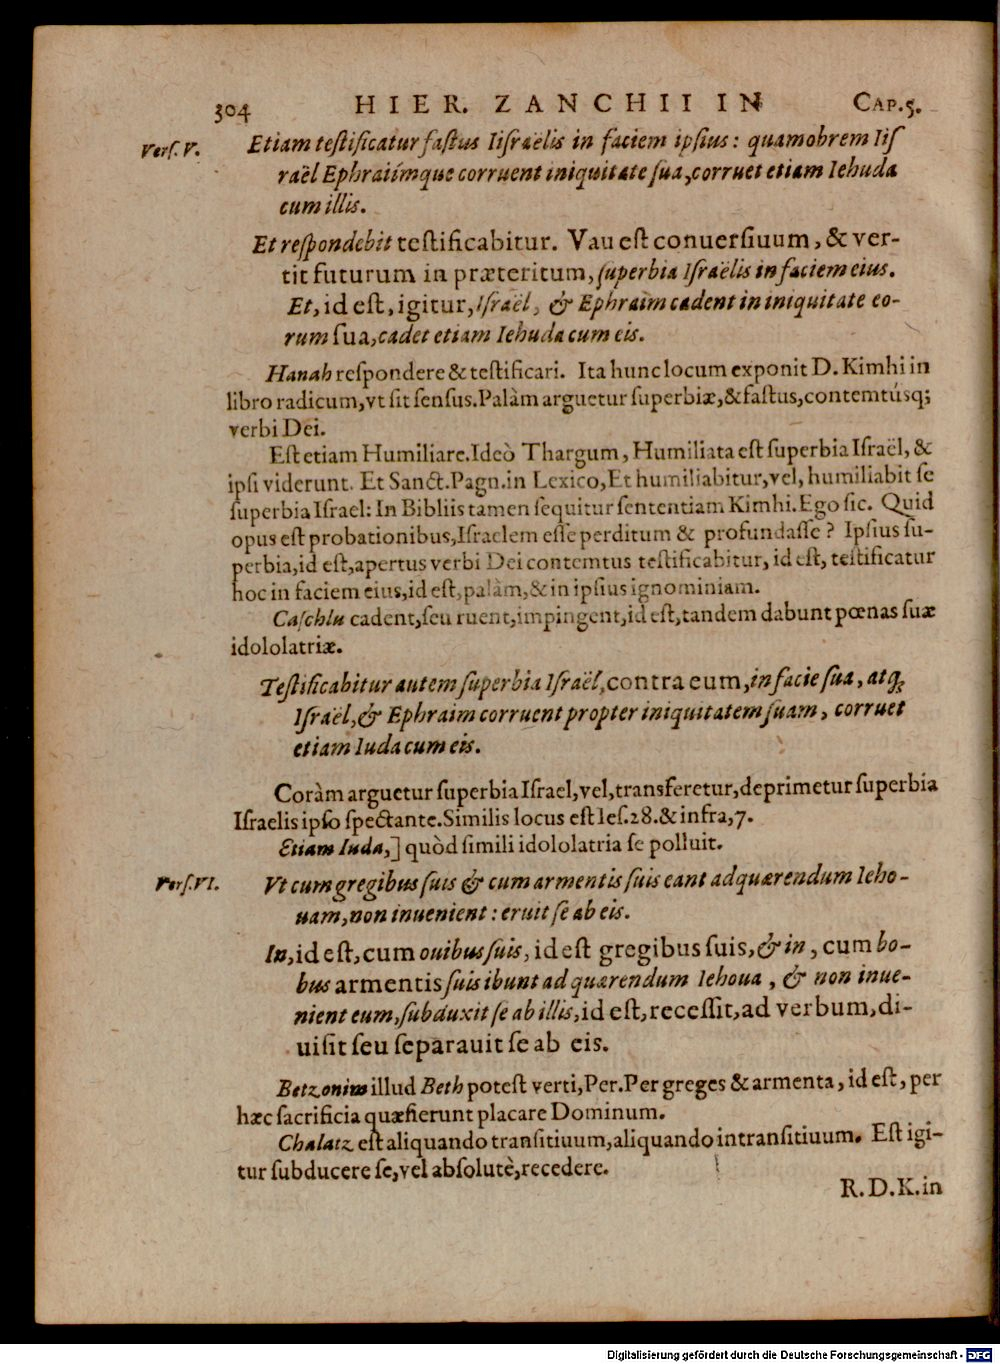 304 HIER. ZANCHII IN CAP.5.
Verſ. V. Etiam teſtificatur faſtus Iiſraëlis in faciem ipſius: quamobrem Iiſ
raël Ephraiímque corruent iniquitate ſua, corruet etiam Iehuda
cum illis.
Et reſpondebit teſtificabitur. Vau eſt conuerſiuum, & ver-
tit futurum in præteritum, ſuperbia Iſraëlis in faciem eius.
Et, id eſt, igitur, Iſraël, & Ephraim cadent in iniquitate eo-
rum ſua, cadet etiam Iehuda cum eis.
Hanah reſpondere & teſtificari. Ita hunc locum exponit D. Kimhi in
libro radicum, vt ſit ſenſus. Palàm arguetur ſuperbiæ, & faſtus, contemtúsq;
verbi Dei.
Eſt etiam Humiliare. Ideò Thargum, Humiliata eſt ſuperbia Iſraël, &
ipſi viderunt. Et Sanct. Pagn. in Lexico, Et humiliabitur, vel, humiliabit ſe
ſuperbia Iſrael: In Bibliis tamen ſequitur ſententiam Kimhi. Ego ſic. Quid
opus eſt probationibus, Iſraelem eſſe perditum & profundaſſe? Ipſius ſu-
perbia, id eſt, apertus verbi Dei contemtus teſtificabitur, id eſt, teſtificatur
hoc in faciem eius, id eſt, palàm, & in ipſius ignominiam.
Caſchlu cadent, ſeu ruent, impingent, id eſt, tandem dabunt pœnas ſuæ
idololatriæ.
Teſtificabitur autem ſuperbia Iſraël, contra eum, in facie ſua, atq;
Iſraël, & Ephraim corruent propter iniquitatem ſuam, corruet
etiam Iuda cum eis.
Coràm arguetur ſuperbia Iſrael, vel, transferetur, deprimetur ſuperbia
Iſraelis ipſo ſpectante. Similis locus eſt Ieſ. 28. & infra, 7.
Etiam Iuda,] quòd ſimili idololatria ſe polluit.
Verſ. VI. Vt cum gregibus ſuis & cum armentis ſuis eant ad quærendum Ieho-
uam, non inuenient: eruit ſe ab eis.
In, id eſt, cum ouibus ſuis, id eſt gregibus ſuis, & in, cum bo-
bus armentis ſuis ibunt ad quærendum Iehoua, & non inue-
nient eum, ſubduxit ſe ab illis, id eſt, receſſit, ad verbum, di-
uiſit ſeu ſeparauit ſe ab eis.
Betzonim illud Beth poteſt verti, Per. Per greges & armenta, id eſt, per
hæc ſacrificia quæ fierunt placare Dominum.
Chalatz eſt aliquando tranſitiuum, aliquando intranſitiuum. Eſt igi-
tur ſubducere ſe, vel abſolutè, recedere.
R. D. K. in
Digitalisierung gefördert durch die Deutsche Forschungsgemeinschaft - DFG